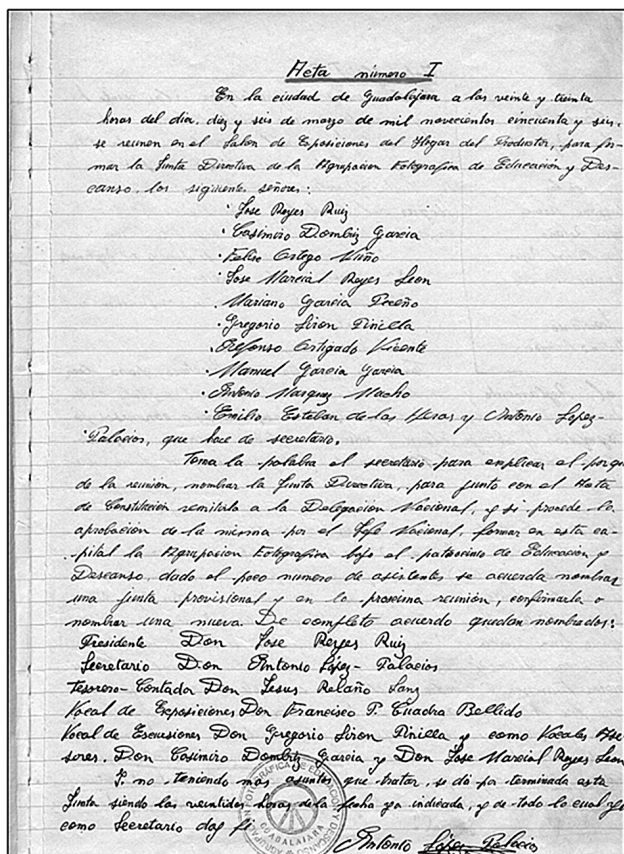 Acta número I
En la ciudad de Guadalajara a las veinte y treinta
horas del dia, diez y seis de marzo de mil novecientos cincuenta y seis,
se reunen en el Salon de Exposiciones del Hogar del Productor, para for-
mar la Junta Directiva de la Agrupacion Fotografica de Educación y Des-
canso, los siguientes señores:
· Jose Reyes Ruiz
· Casimiro Dombriz Garcia
· Felipe Ortego Nuño
· Jose Marcial Reyes Leon
· Mariano Garcia Peceño
· Gregorio Siron Pinilla
· Alfonso Artigado Vicente
· Manuel Garcia Garcia
· Antonio Marquez Macho
· Emilio Esteban de las Heras y Antonio Lopez-
Palacios, que hace de secretario.
Toma la palabra el secretario para explicar el porque
de la reunión, nombrar la Junta Directiva, para junto con el Acta
de Constitución remitirla a la Delegacion Nacional, y si procede la
aprobacion de la misma por el Jefe Nacional, formar en esta ca-
pital la Agrupacion Fotografica bajo el patrocinio de Educacion y
Descanso, dado el poco numero de asistentes se acuerda nombrar
una junta provisional y en la proxima reunión, confirmarla o
nombrar una nueva. De completo acuerdo quedan nombrados:
Presidente Don Jose Reyes Ruiz
Secretario Don Antonio López-Palacios
Tesorero-Contada Don Jesus Relaño Sanz
Vocal de Exposiciones Don Francisco P. Cuadra Bellido
Vocal de Excursiones Don Gregorio Siron Pinilla y como Vocales Ase-
sores. Don Casimiro Dombriz Garcia y Don Jose Marcial Reyes Leon
Y no teniendo mas asuntos que tratar, se dá por terminada esta
Junta siendo las veintidos horas de la fecha ya indicada, y de todo lo cual yo
como Secretario doy fé
Antonio López Palacios
AGRUPACION FOTOGRÁFICA DE EDUCACION Y DESCANSO
GUADALAJARA